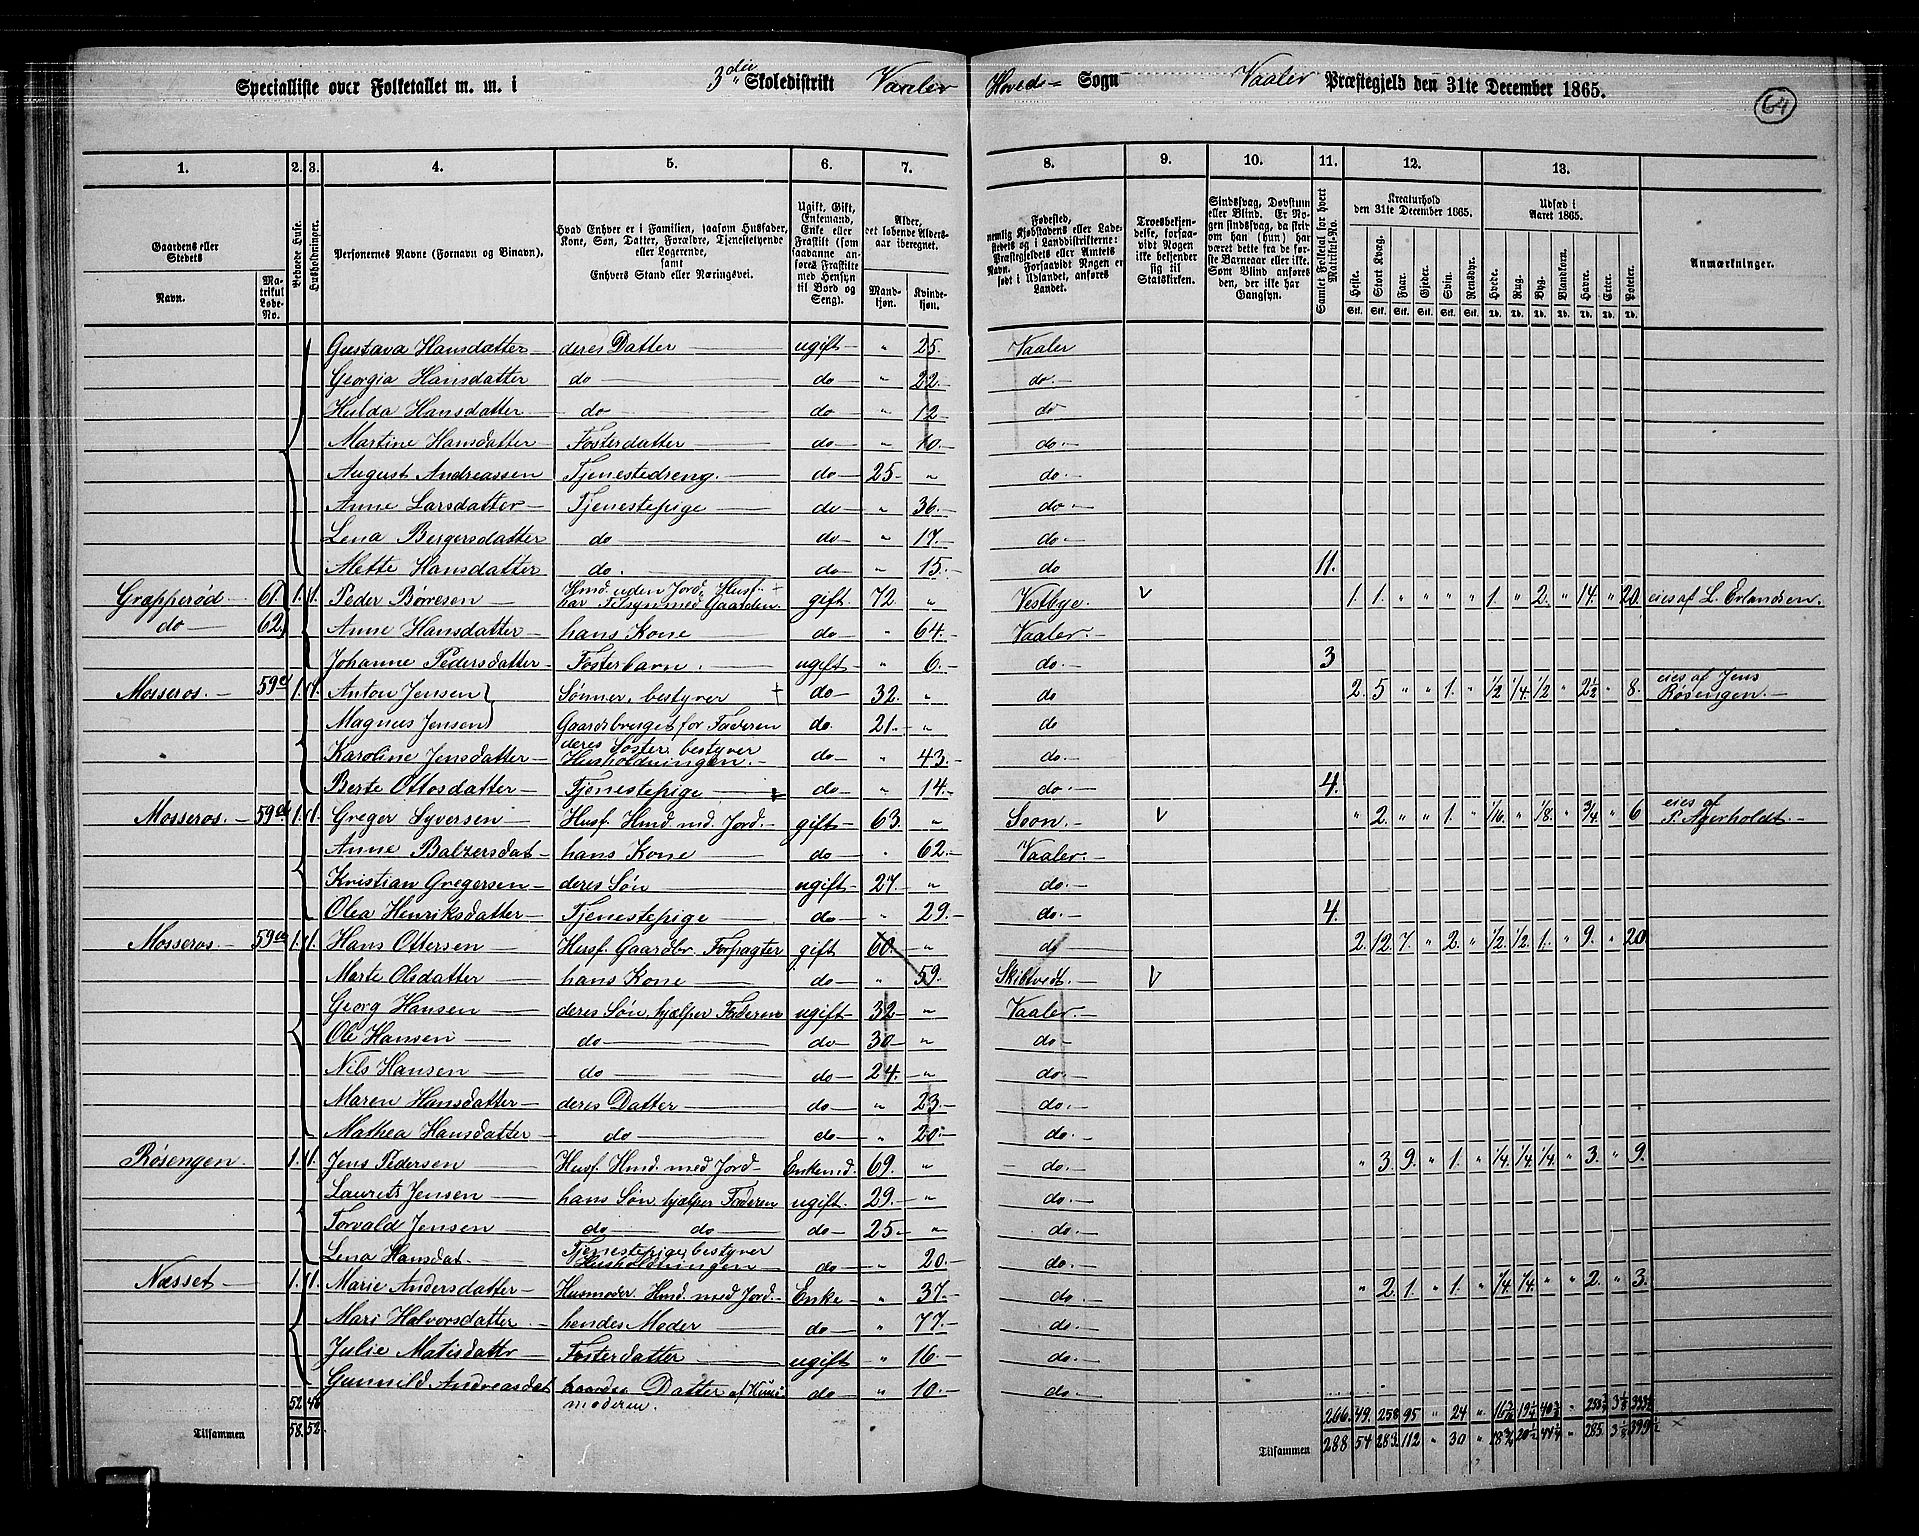 Specialliste over Folketallet m. m. i 3die Skoledistrikt Vaaler Hoved- Sogn Vaaler Præstegjeld den 31te December 1865.
64
1. 2. 3. 4. 5. 6. 7. 8. 9. 10. 11. 12. 13.
Gaardens eller Stedets Navn.
Matrikul Løbe-No.
Beboede Huse.
Husholdninger.
Personernes Navne (Fornavn og Binavn).
Hvad Enhver er i Familien, saasom Husfader, Kone, Søn, Datter, Forældre, Tjenestetyende eller Logerende, samt Enhvers Stand eller Næringsvei.
Ugift, Gift, Enkemand, Enke eller Fraskilt (som saadanne anføres Fraskilte med Hensyn til Bord og Seng).
Alder, det løbende Aldersaar iberegnet.
Mandkjøn. Kvindekjøn.
Fødested, nemlig Kjøbstadens eller Ladestedets og i Landdistrikterne: Præstegjeldets eller Amtets Navn. Forsaavidt Nogen er født i Udlandet, anføres Landet.
Troesbekjendelse, forsaavidt Nogen ikke bekjender sig til Statskirken.
Sindssvag, Døvstum eller Blind. Er Nogen sindssvag, da skriv om han (hun) har været dette fra de første Barneaar eller ikke. Som Blind anføres den, der ikke har Gangsyn.
Samlet Folketal for hvert Matrikul-No.
Kreaturhold den 31te December 1865.
Heste. Stort Kvæg. Faar. Gjeder. Svin. Rensdyr.
Udsæd i Aaret 1865.
Hvede. Rug. Byg. Blandkorn. Havre. Erter. Poteter.
Stk. Stk. Stk. Stk. Stk. Stk. Td. Td. Td. Td. Td. Td. Td.
Anmærkninger.
Gustava Hansdatter deres Datter ugift " 25. Vaaler
Georgia Hansdatter do do " 22. do.
Hulda Hansdatter do do " 12 do
Martine Hansdatter Fosterdatter do " 10. do.
August Andreassen Tjenestedreng. do 25 " do.
Anne Larsdatter Tjenestepige do " 36. do.
Lena Bergersdatter do do " 17. do.
Mette Hansdatter do. do " 15. do 11.
Græpperød 61. 1. 1. Peder Børresen Hmd. uden Jord, Husf. har Tilsyn med Gaarden gift. 72 " Vestbye. V 1. 1. " " " " 1. " 2. " 14. " 20. eies af L. Erlandsen.
do 62. Anne Hansdatter hans Kone do " 64. Vaaler.
Johanne Pedersdatter Fosterbarn. ugift " 6. do. 3
Mosseros. 59 1. 1. Anton Jensen Sønner, bestyrer + do 32. " do 2. 5 " " 1. " 1/2 1/4 1/2 " 2 1/2 " 8. eies af Jens Røsengen.
Magnus Jensen Gaardsbruget for Faderen do. 21. " do
Karoline Jensdatter deres Søster, bestyrer Husholdningen. do " 43. do.
Berte Ottosdatter Tjenestepige do " 14. do. 4.
Mosseros. 59 1. 1. Greger Syversen Husf. Hmd. m. Jord. gift 63. " Soon. V " 2. " " 1. " 1/16 " 1/8 " 3/4 " 6 eies af P. Agerholdt.
Anne Balzersdat hans Kone do " 62. Vaaler.
Kristian Gregersen deres Søn ugift 27. " do.
Olea Henriksdatter Tjenestepige do " 29. do. 4.
Mosseros. 59 1. 1. Hans Ottersen Husf. Gaardbr. Forpagter gift 60. " do 2. 12. 7. " 2. " 1/2 1/2 1. " 9. " 20
Marte Olsdatter hans Kone do " 59. Skibtvedt. V
Georg Hansen deres Søn, hjælper Faderen ugift 32 " Vaaler
Ole Hansen do do 30 " do
Nils Hansen do do 24. " do.
Maren Hansdatter deres Datter do " 23. do.
Mathea Hansdatter do do " 20. do.
Røsengen. 1. 1. Jens Pedersen Husf. Hmd. med Jord Enkemd. 69. " do. " 3. 9. " 1. " 1/4 1/4 1/4 " 3. " 9.
Laurits Jensen hans Søn, hjælper Faderen ugift. 29. " do.
Torvald Jensen do do do 25 " do.
Lena Hansdat. Tjenestepige, bestyrer Husholdningen do " 20. do.
Næsset 1. 1. Marie Andersdatter Husmoder. Hmd. med Jord. Enke " 37. do. " 2. 1. " 1. " 1/4 1/4 " " 2. " 3.
Mari Halvorsdatter hendes Moder do " 77. do.
Julie Matisdattr Fosterdatter ugift " 16. do.
Gunnild Andreasdat Datter af Husmoderen. do " 10. do.
52 46 266 49. 258 95 " 24 "
Tilsammen 58. 52. Tilsammen 288 54 283 112 " 30 " 285.